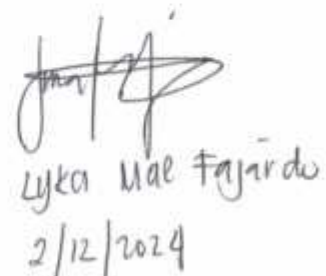 Lyka Mae Fajardo
2/12/2024